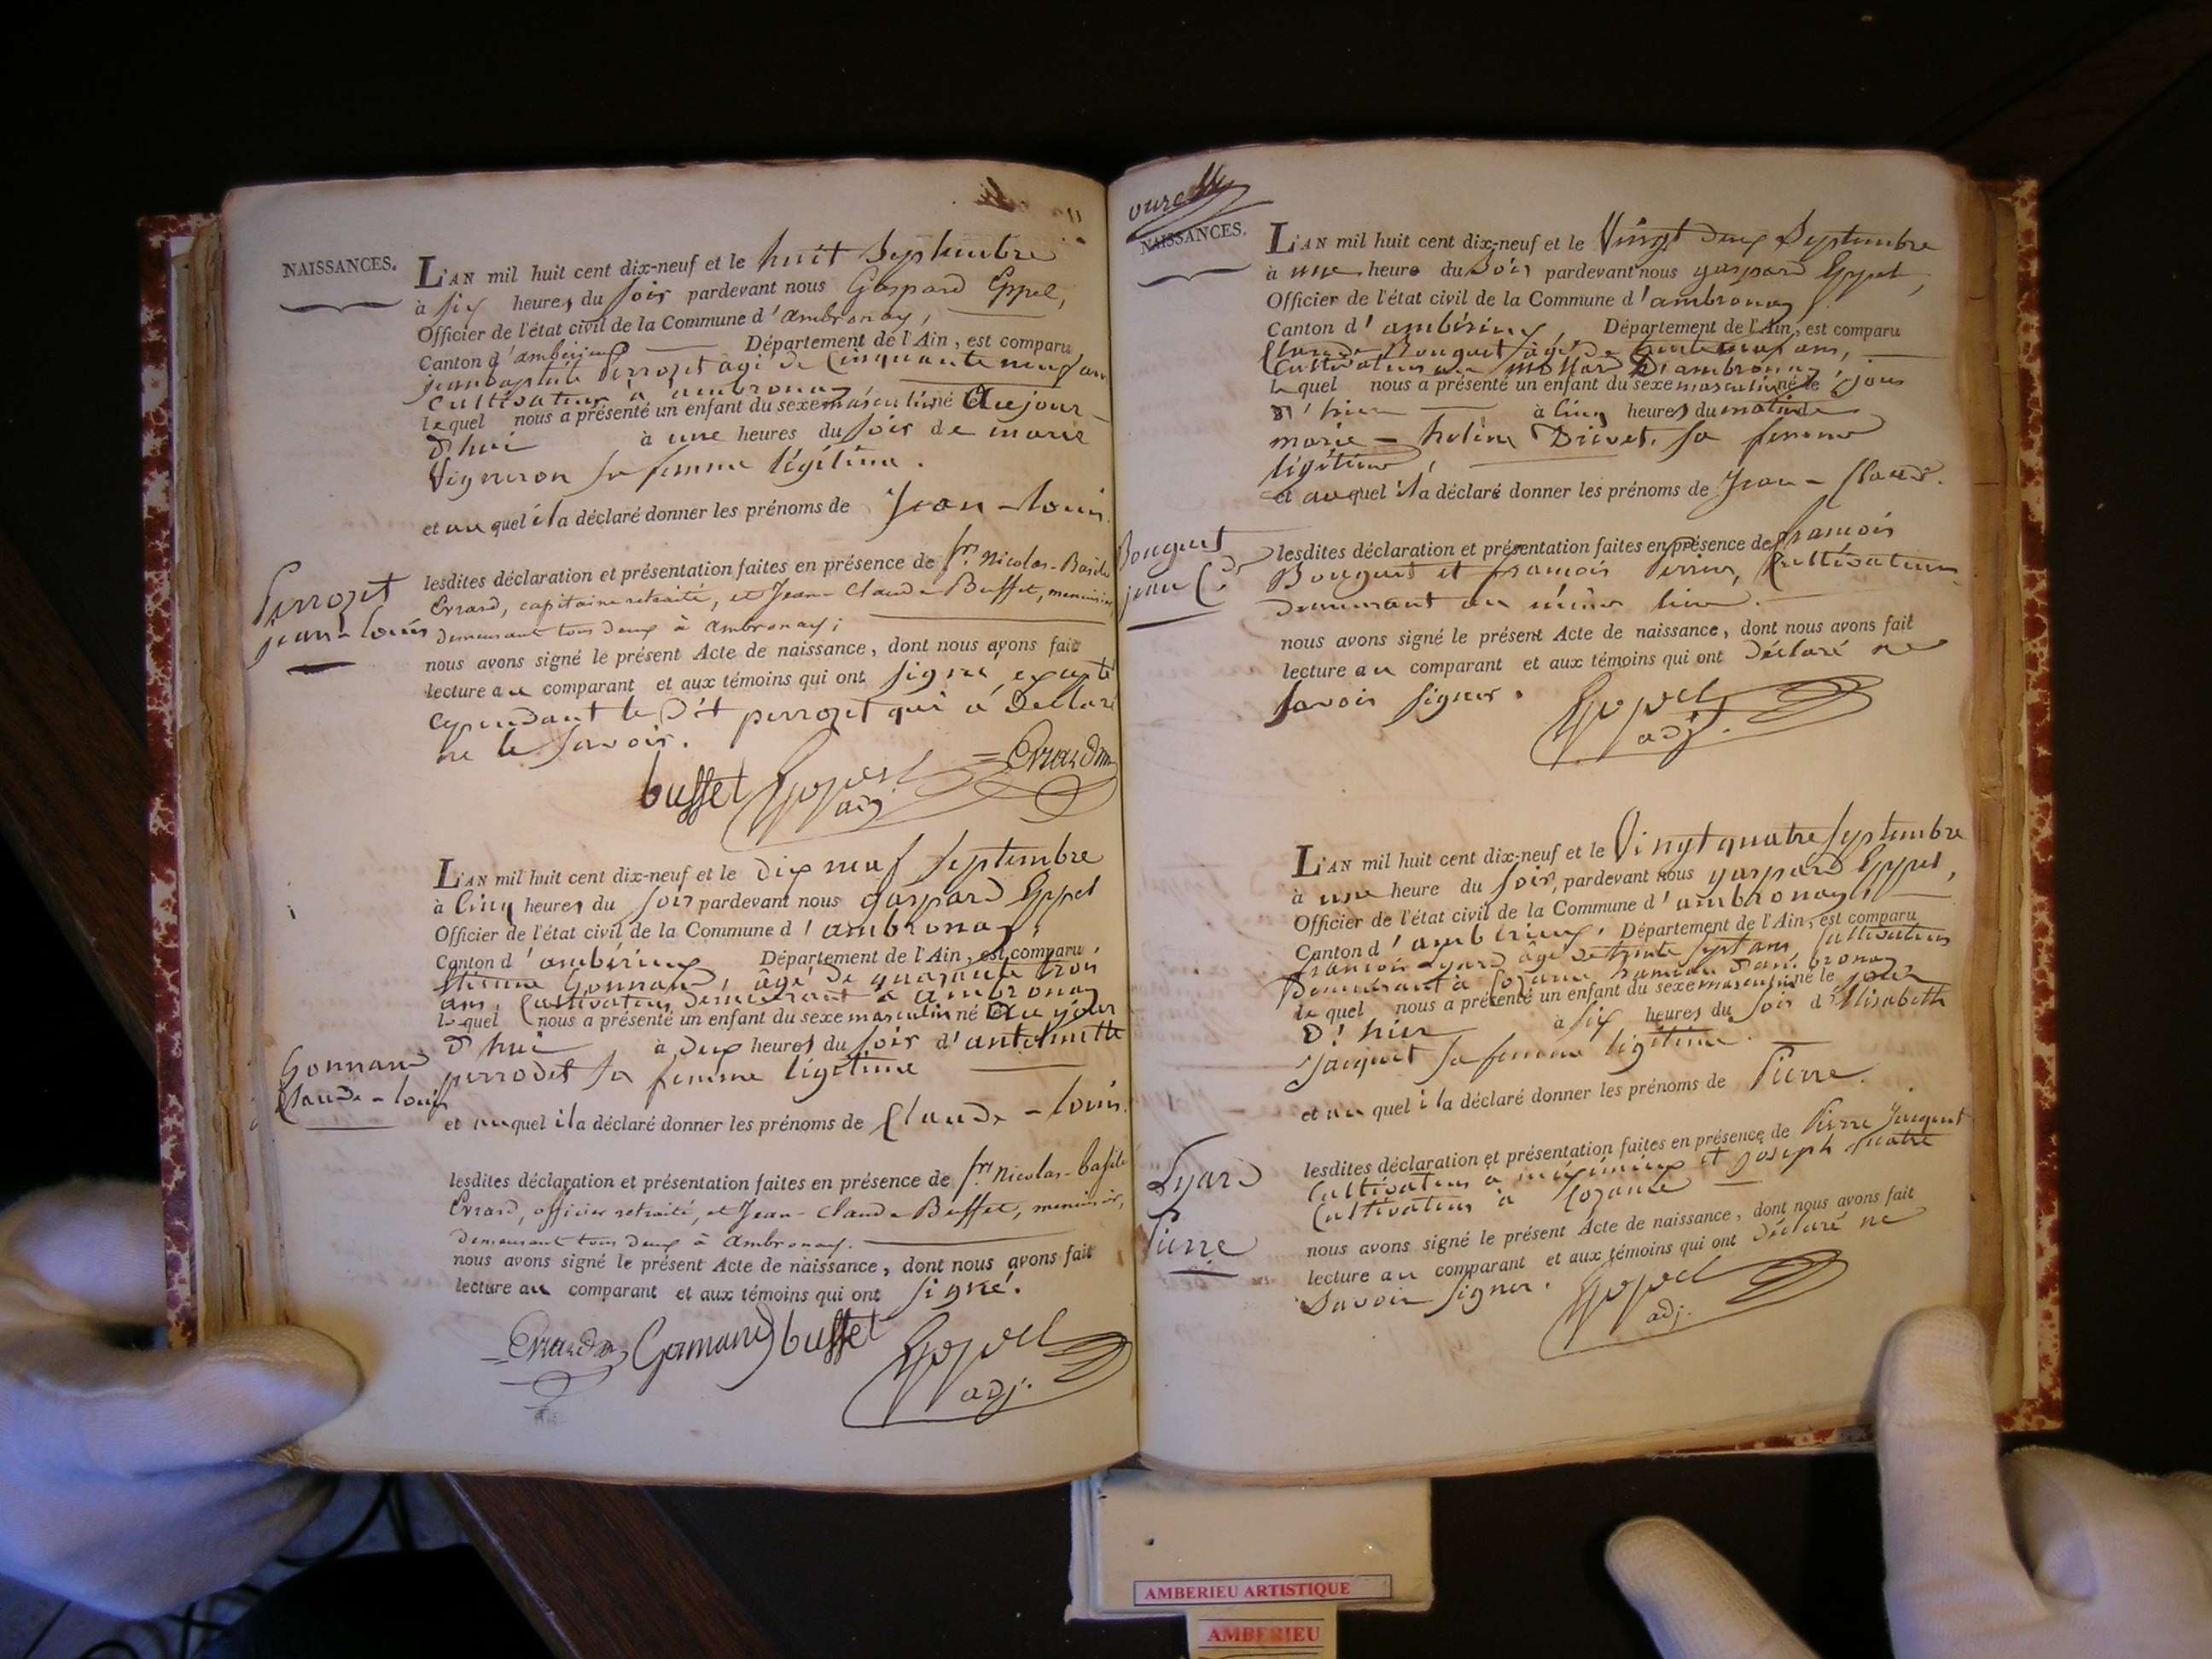 NAISSANCES.
L'AN mil huit cent dix-neuf et le huit Septembre
à six heures du soir pardevant nous Gaspard Eppel,
Officier de l'état civil de la Commune d'ambronay,
Canton d'ambérieux Département de l'Ain, est comparu
jean baptiste Perrozet agé de Cinquante neuf ans
Cultivateur à ambronay,
lequel nous a présenté un enfant du sexe masculin né le Aujour-
d'hui à une heures du soir de marie
Vigneron sa femme légitime.
et auquel il a déclaré donner les prénoms de Jean-louis.
Perrozet
jean-louis
lesdites déclaration et présentation faites en présence de frs. Nicolas-Basile
Evrard, capitaine retraité, et Jean-Claude Buffet, menuisier,
demeurant tous deux à Ambronay;
nous avons signé le présent Acte de naissance, dont nous avons fait
lecture au comparant et aux témoins qui ont signé, excepté
cependant le dit perrozet qui a Déclaré
ne le savoir.
buffet Eppel adj Evrard
L'AN mil huit cent dix-neuf et le dix neuf Septembre
à Cinq heures du soir pardevant nous gaspard Eppel
Officier de l'état civil de la Commune d'ambronay,
Canton d'ambérieux Département de l'Ain, est comparu
Etienne Gonnand, âgé de quarante trois
ans, Cultivateur demeurant à ambronay
lequel nous a présenté un enfant du sexe masculin né le Au jour
d'hui à deux heures du soir d'antoinette
perrodet sa femme légitime
Gonnand
Claude-louis
et auquel il a déclaré donner les prénoms de Claude-louis.
lesdites déclaration et présentation faites en présence de frs. Nicolas-basile
Evrard, officier retraité, et Jean-Claude Buffet, menuisier,
demeurant tous deux à Ambronay.
nous avons signé le présent Acte de naissance, dont nous avons fait
lecture au comparant et aux témoins qui ont signé.
Evrard Gonnand buffet Eppel
adj.
NAISSANCES.
L'AN mil huit cent dix-neuf et le Vingt deux Septembre
à une heure du Soir pardevant nous gaspard Eppel,
Officier de l'état civil de la Commune d'ambronay
Canton d'ambérieux, Département de l'Ain, est comparu
Claude Bouguet âgé de trente neuf ans,
Cultivateur au mollard D'ambronay
lequel nous a présenté un enfant du sexe masculin né le jour
d'hier à Cinq heures du matin de
marie-helène sa femme
légitime,
et auquel il a déclaré donner les prénoms de Jean-Claude.
Bouguet
jean Cde
lesdites déclaration et présentation faites en présence de françois
Bouguet et françois Perrin, Cultivateurs
demeurant au même lieu.
nous avons signé le présent Acte de naissance, dont nous avons fait
lecture au comparant et aux témoins qui ont déclaré ne
savoir signer.
Eppel
adj.
L'AN mil huit cent dix-neuf et le Vingt quatre Septembre
à une heure du soir, pardevant nous gaspard Eppel,
Officier de l'état civil de la Commune d'ambronay
Canton d'ambérieux, Département de l'Ain, est comparu
francois Lyard âgé de trente sept ans, Cultivateur
Demeurant à Cozance hameau d'ambronay
lequel nous a présenté un enfant du sexe masculin né le jour
d'hier à six heures du soir d'Elisabeth
Jacquet sa femme légitime.
et auquel il a déclaré donner les prénoms de Pierre.
Lyard
Pierre
lesdites déclaration et présentation faites en présence de Pierre Jacquet
Cultivateur à méximieux et Joseph
Cultivateur à Cozance
nous avons signé le présent Acte de naissance, dont nous avons fait
lecture au comparant et aux témoins qui ont déclaré ne
savoir signer.
Eppel
adj.
AMBERIEU ARTISTIQUE
AMBERIEU